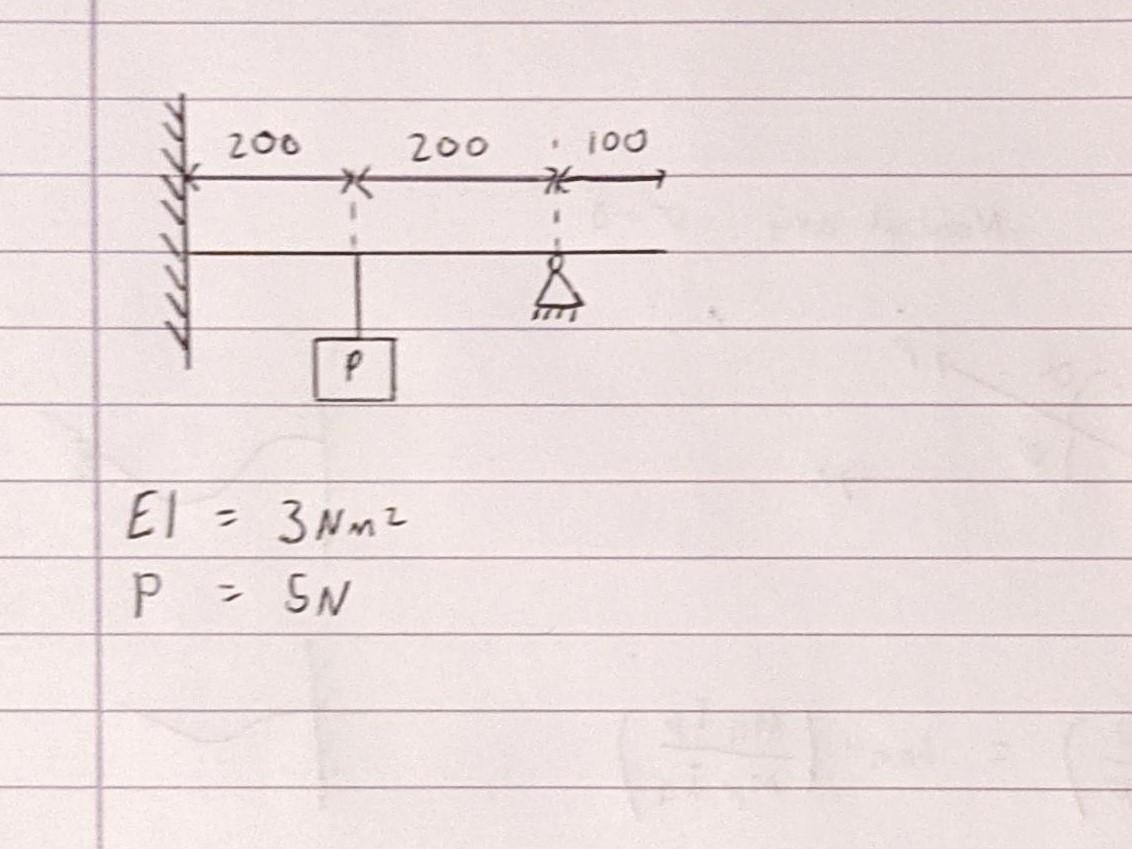 200 200 100
P
EI = 3Nm²
P = 5N